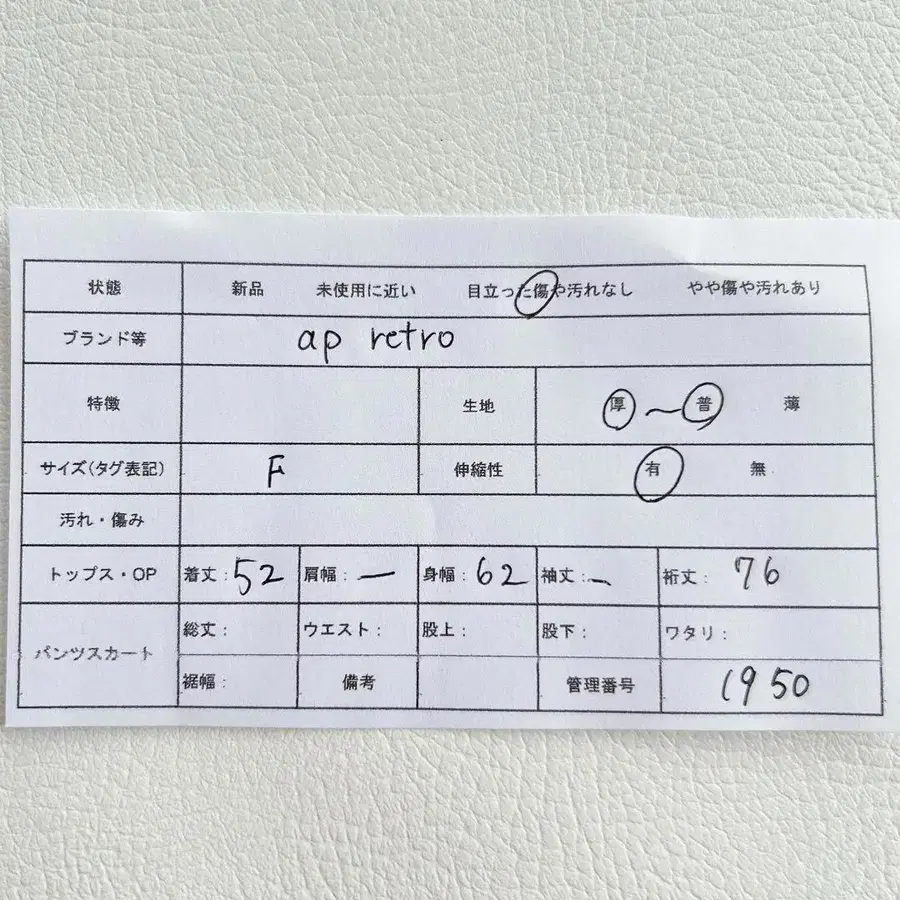 状態 新品 未使用に近い 目立った傷や汚れなし やや傷や汚れあり
ブランド等 ap retro
特徴 生地 厚 〜 普 薄
サイズ(タグ表記) F 伸縮性 有 無
汚れ・傷み
トップス・OP 着丈:52 肩幅:― 身幅:62 袖丈:― 裄丈:76
パンツスカート 総丈: ウエスト: 股上: 股下: ワタリ:
裾幅: 備考 管理番号 1950